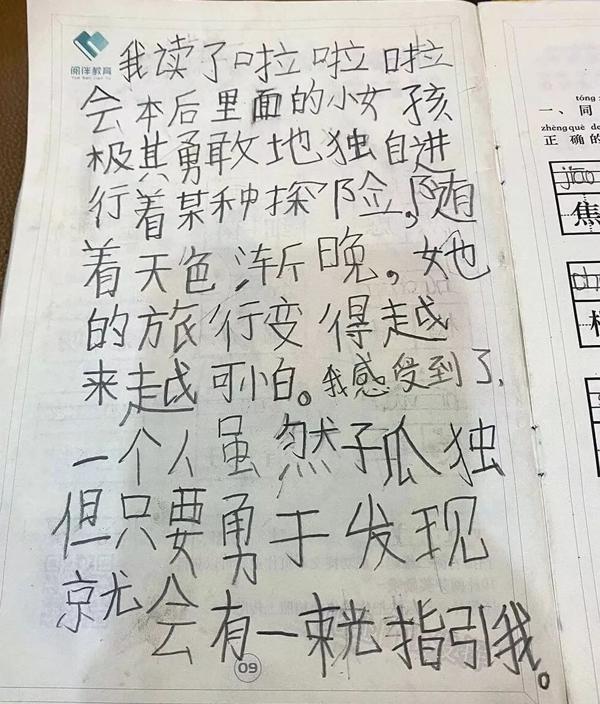 阅伴教育
我读了啦啦啦
会本后里面的小女孩
极其勇敢地独自进
行着某种探险，随
着天色渐晚，她
的旅行变得越
来越可怕。我感受到了，
一个人虽然孤独
但只要勇于发现
就会有一束光指引我。
09
tóng
一、同
zhèng què de
正确的
jiāo
焦